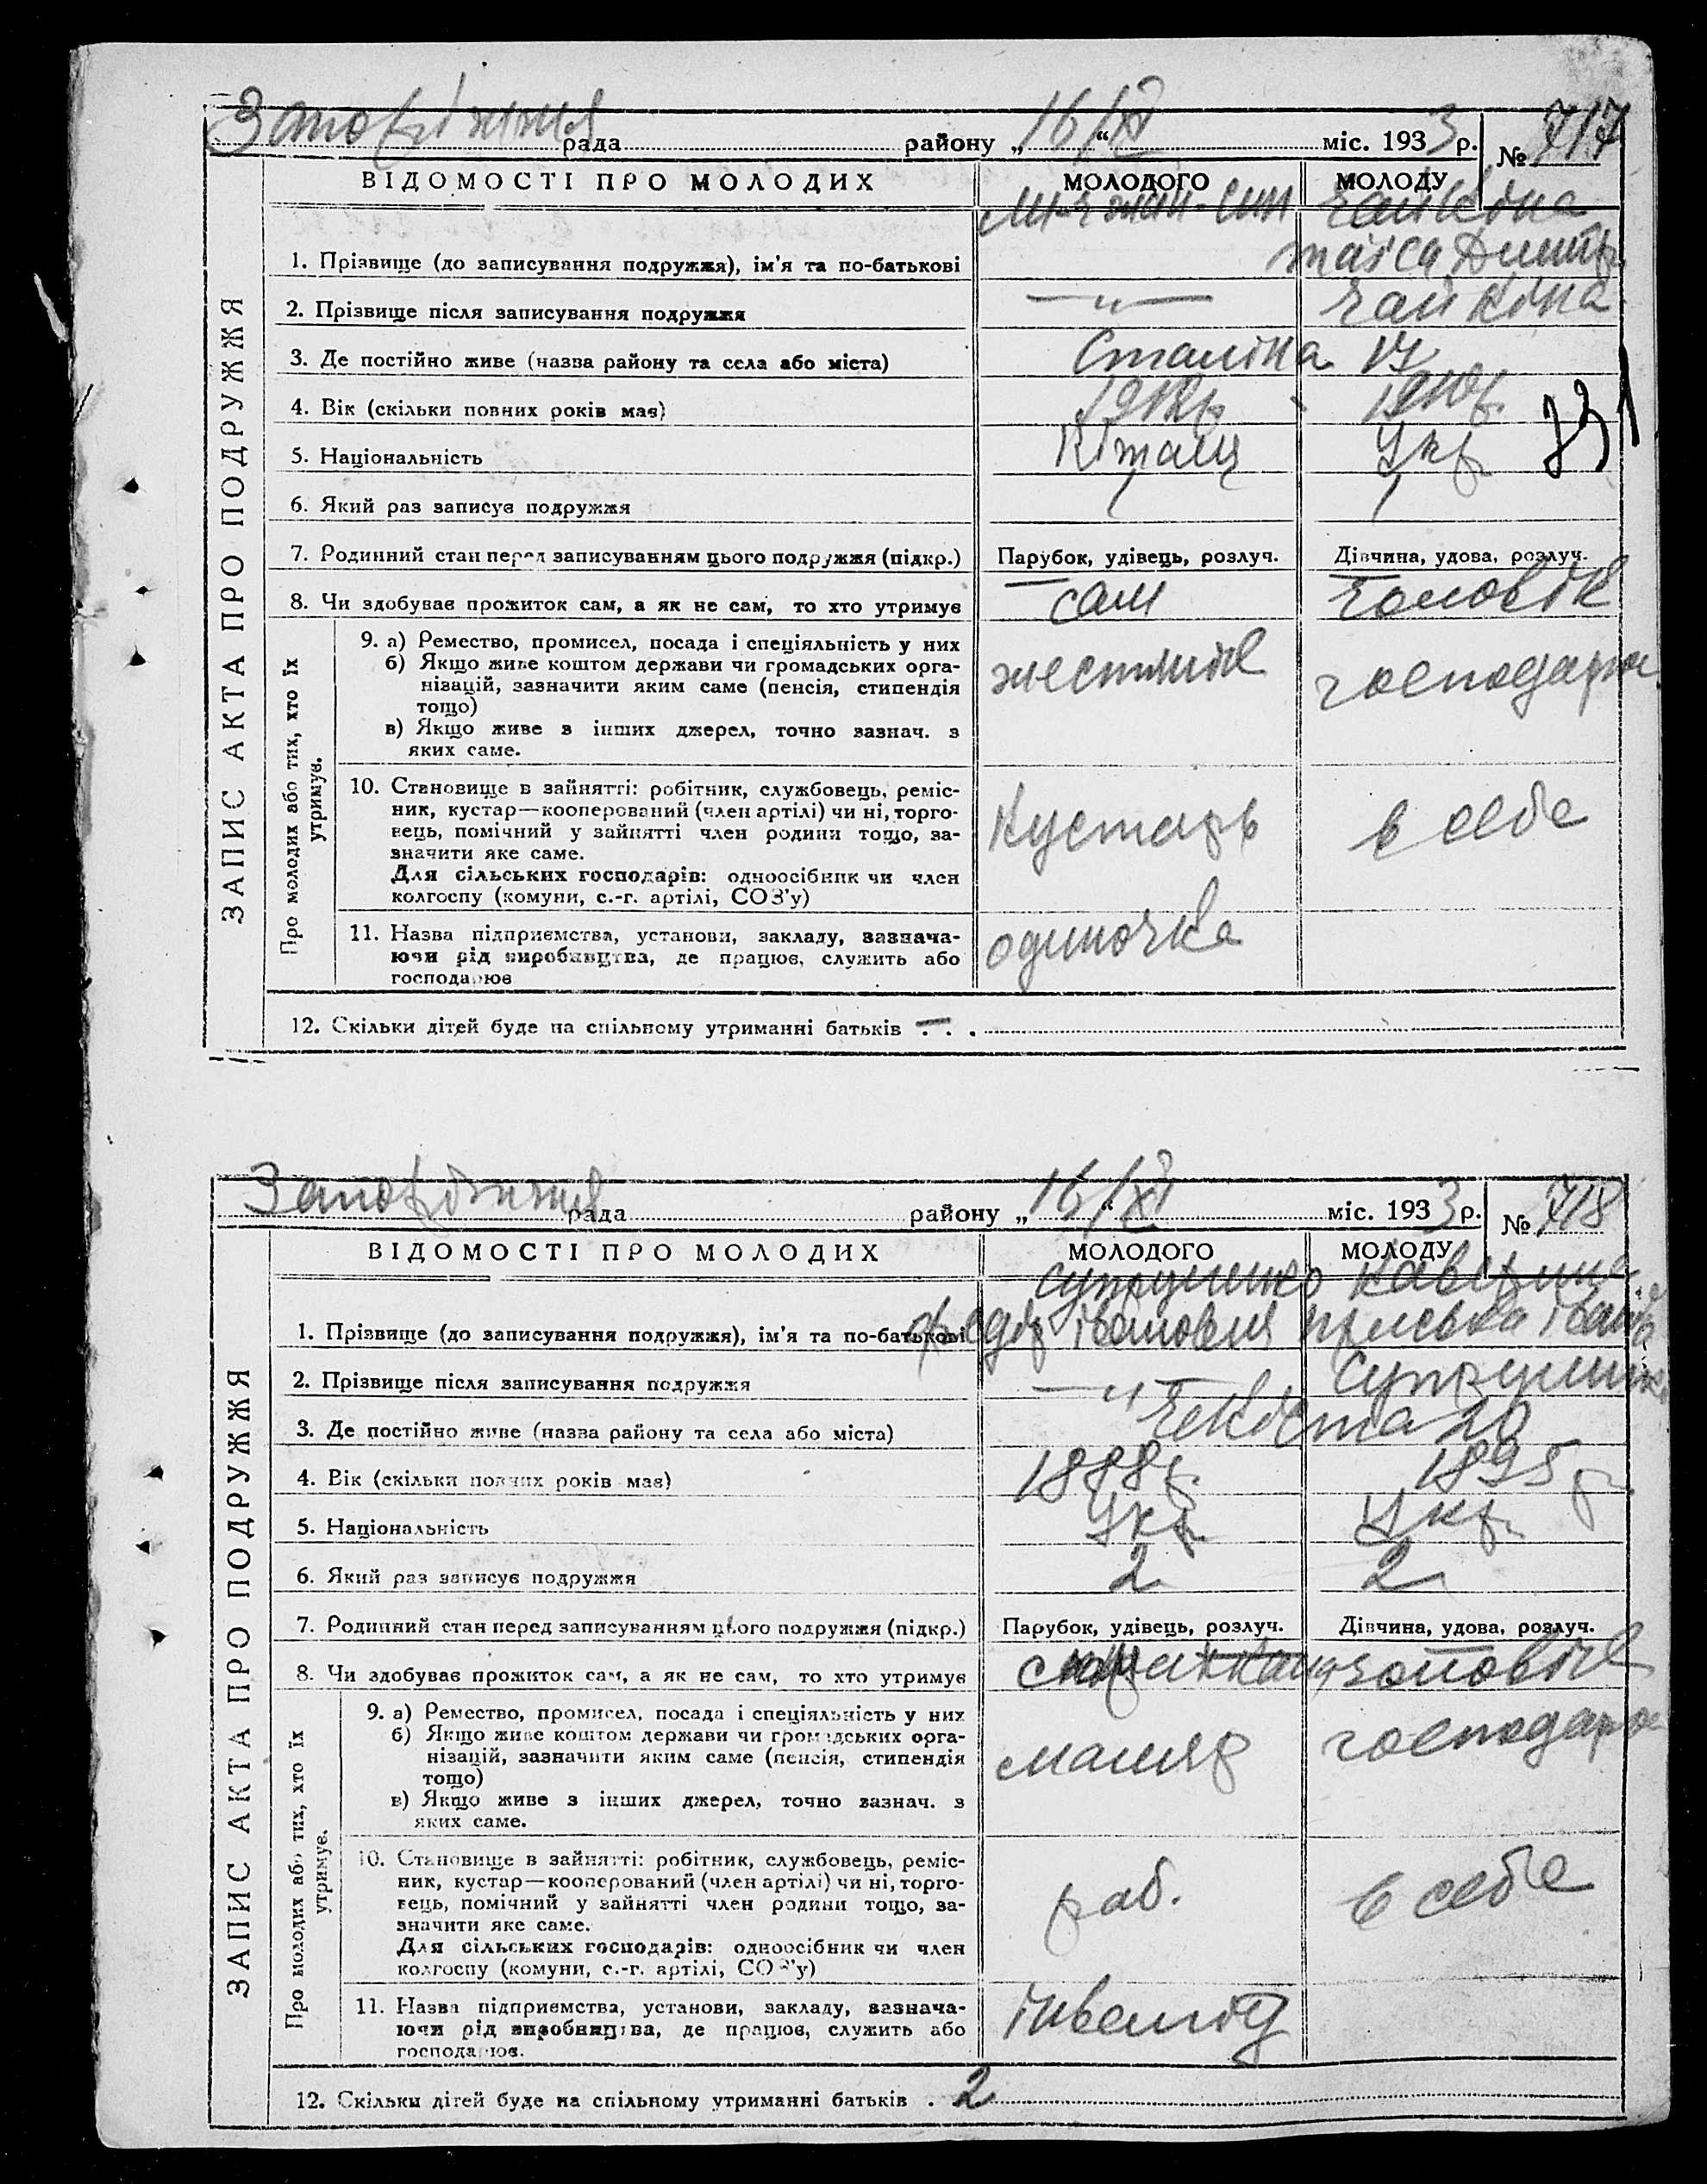 Запоріжжя рада района „16/XI“ міс. 1933 р. № 717
ЗАПИС АКТА ПРО ПОДРУЖЖЯ
ВІДОМОСТІ ПРО МОЛОДИХ МОЛОДОГО МОЛОДУ
Чайкіна
1. Прізвище (до записування подружжя), ім'я та по-батькові Таіса Дмитр.
2. Прізвище після записування подружжя —„— Чайкіна
3. Де постійно живе (назва району та села або міста) Сталіна 17
4. Вік (скільки повних років має) 1910р.
5. Національність Кітаєць Укр.
6. Який раз записує подружжя 1 1
7. Родинний стан перед записуванням цього подружжя (підкр.) Парубок, удівець, розлуч. Дівчина, удова, розлуч.
8. Чи здобуває прожиток сам, а як не сам, то хто утримує сам чоловік
Про молодих або тих, хто їх утримує.
9. а) Ремество, промисел, посада і спеціяльність у них
б) Якщо живе коштом держави чи громадських орга-
нізацій, зазначити яким саме (пенсія, стипендія
тощо)
в) Якщо живе з інших джерел, точно зазнач. з
яких саме.
жестяник господарює
10. Становище в зайнятті: робітник, службовець, реміс-
ник, кустар—кооперований (член артілі) чи ні, торго-
вець, помічний у зайнятті член родини тощо, за-
значити яке саме.
Для сільських господарів: одноосібник чи член
колгоспу (комуни, с.-г. артілі, СОЗ'у)
Кустарь в себе
11. Назва підприємства, установи, закладу, зазнача-
ючи рід виробництва, де працює, служить або
господарює
одиночка
12. Скільки дітей буде на спільному утриманні батьків . . . —
Запоріжжя рада району „16/XI“ міс. 1933 р. № 718
ЗАПИС АКТА ПРО ПОДРУЖЖЯ
ВІДОМОСТІ ПРО МОЛОДИХ МОЛОДОГО МОЛОДУ
Супруненко
1. Прізвище (до записування подружжя), ім'я та по-батькові Федір Івановия Пріська Іванів
2. Прізвище після записування подружжя —„— Супруненко
3. Де постійно живе (назва району та села або міста) Чекіста 20
4. Вік (скільки повних років має) 1888р. 1895 р.
5. Національність Укр. Укр.
6. Який раз записує подружжя 2 2
7. Родинний стан перед записуванням цього подружжя (підкр.) Парубок, удівець, розлуч. Дівчина, удова, розлуч.
8. Чи здобуває прожиток сам, а як не сам, то хто утримує чоловік
Про молодих або тих, хто їх утримує.
9. а) Ремество, промисел, посада і спеціяльність у них
б) Якщо живе коштом держави чи громадських орга-
нізацій, зазначити яким саме (пенсія, стипендія
тощо)
в) Якщо живе з інших джерел, точно зазнач. з
яких саме.
маляр господарює
10. Становище в зайнятті: робітник, службовець, реміс-
ник, кустар—кооперований (член артілі) чи ні, торго-
вець, помічний у зайнятті член родини тощо, за-
значити яке саме.
Для сільських господарів: одноосібник чи член
колгоспу (комуни, с.-г. артілі, СОЗ'у)
роб. в себе
11. Назва підприємства, установи, закладу, зазнача-
ючи рід виробництва, де працює, служить або
господарює.
Інвалід
12. Скільки дітей буде на спільному утриманні батьків . 2